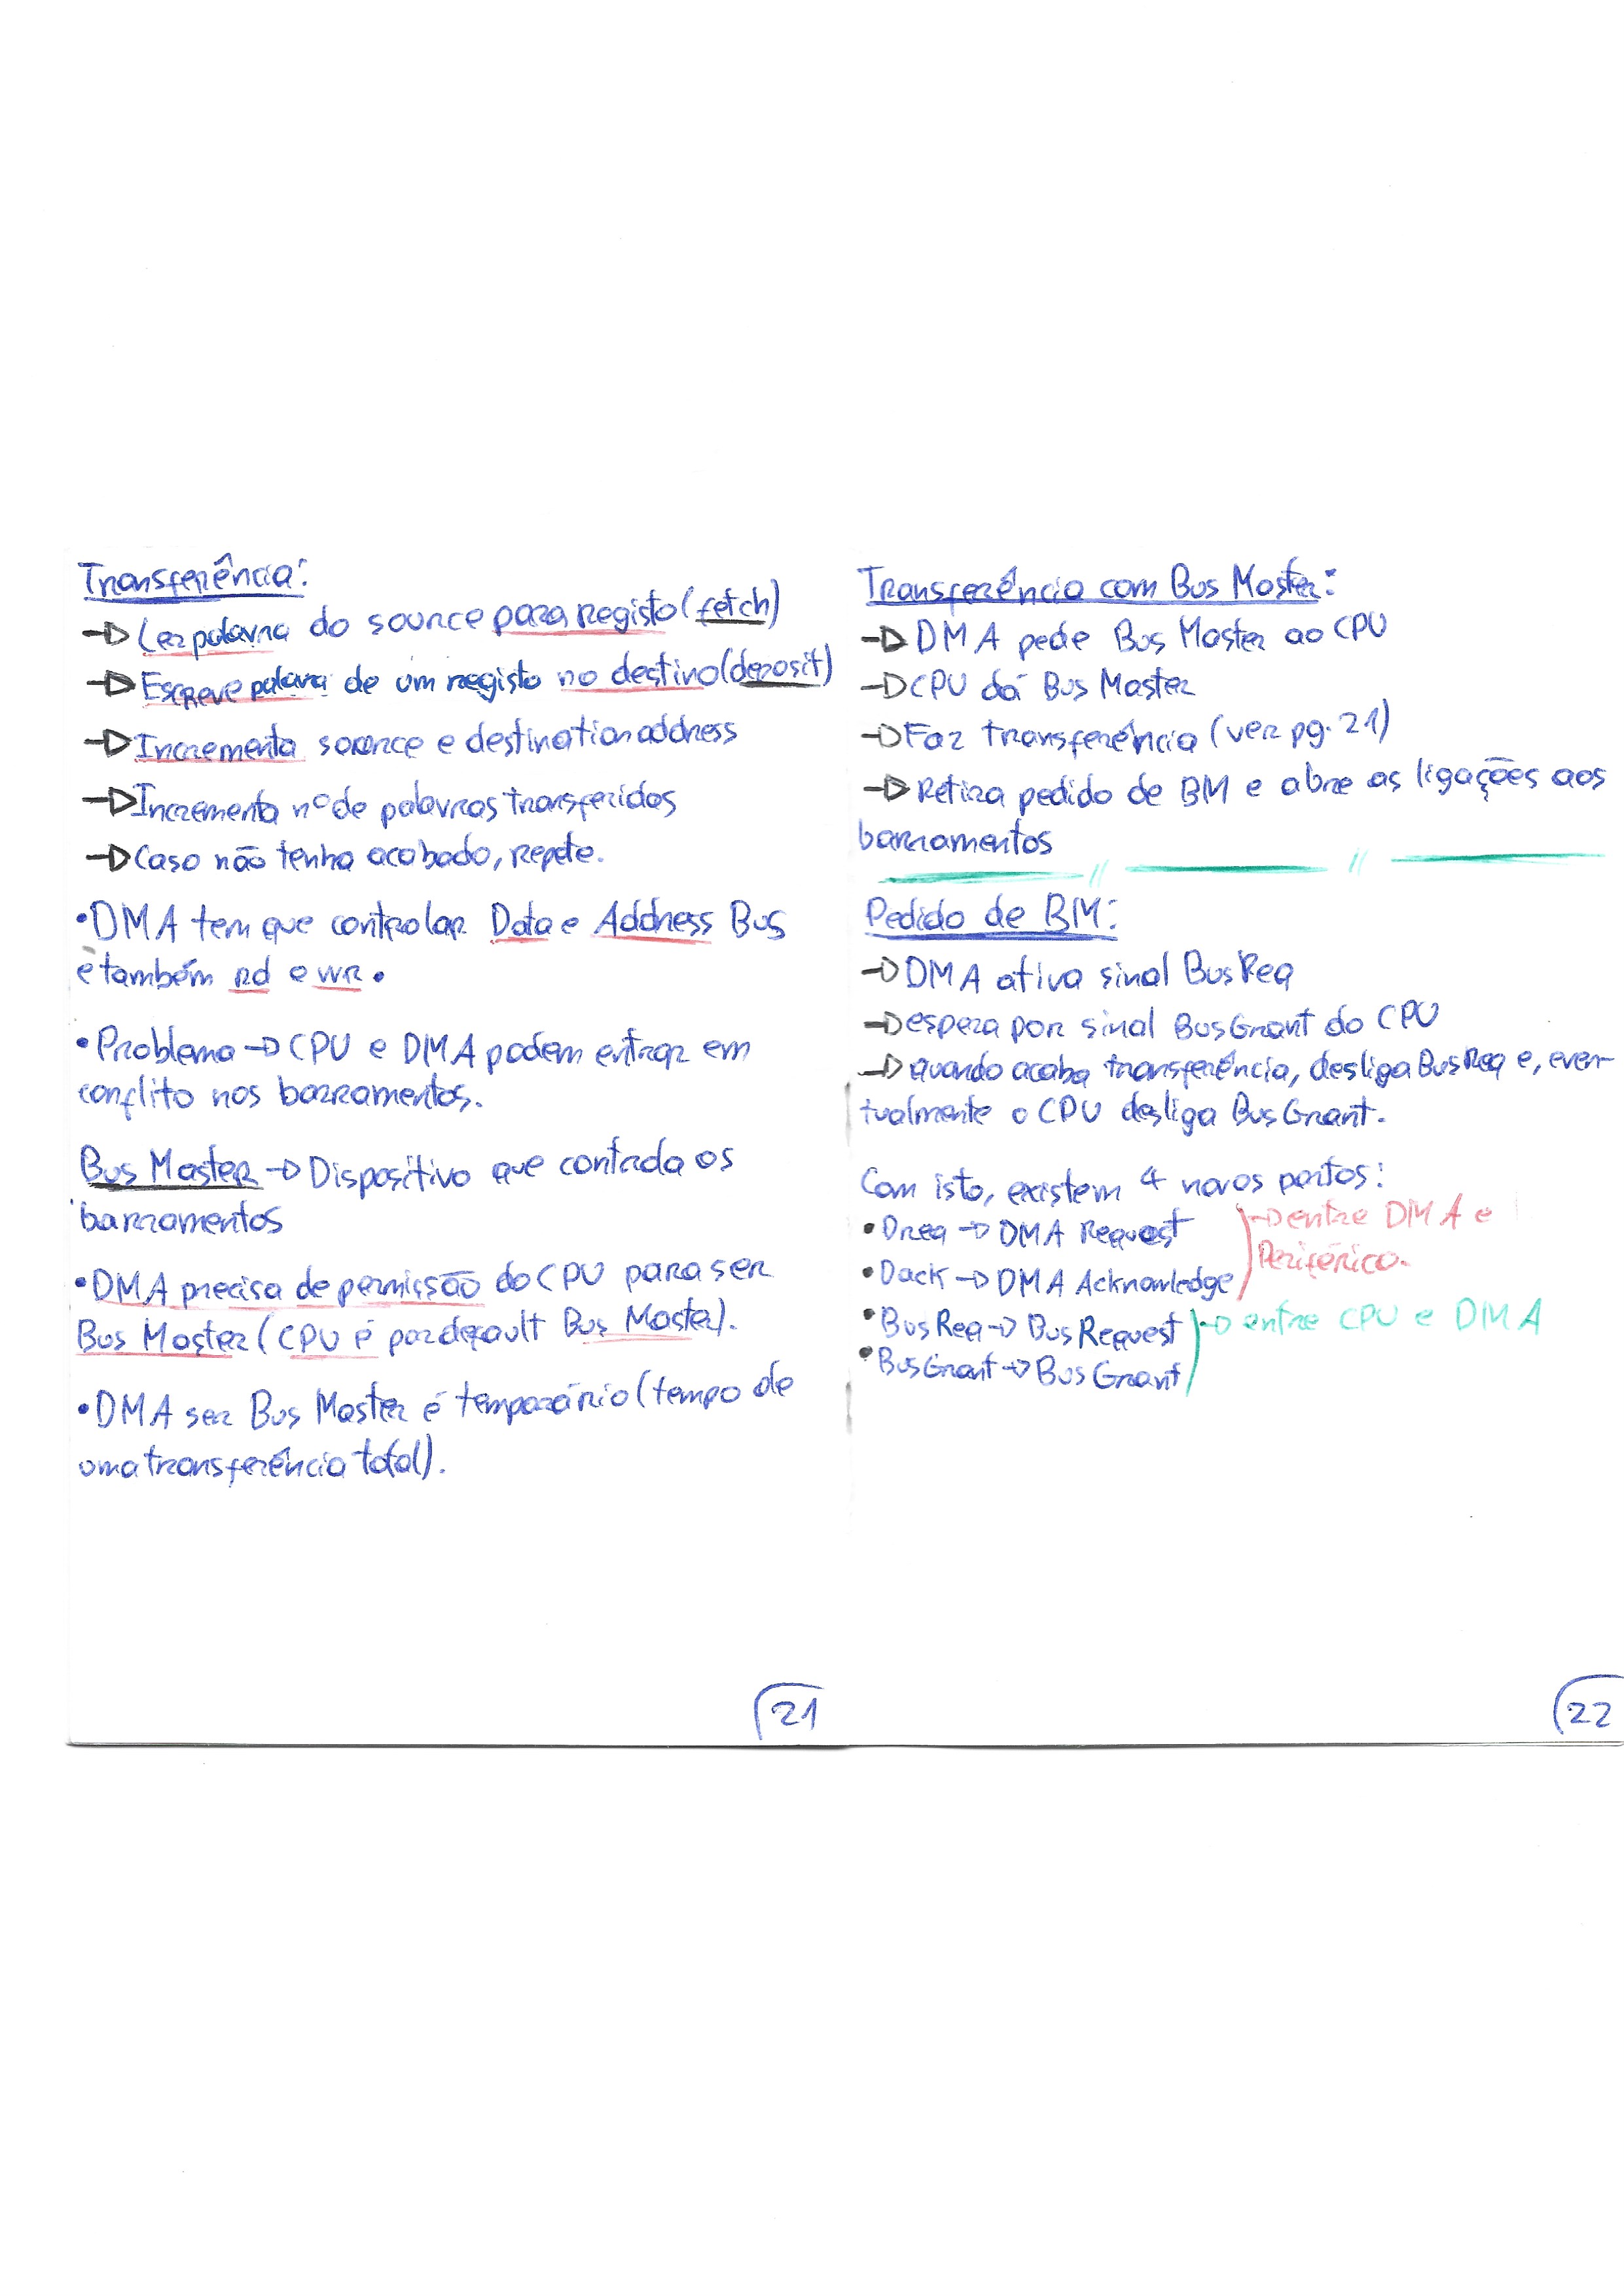 Transferência:
→ Ler palavra do source para registo (fetch)
→ Escreve palavra de um registo no destino (deposit)
→ Incrementa source e destination address
→ Incrementa nº de palavras transferidas
→ Caso não tenha acabado, repete.
• DMA tem que controlar Data e Address Bus
e também rd e wr.
• Problema → CPU e DMA podem entrar em
conflito nos barramentos.
Bus Master → Dispositivo que controla os
barramentos
• DMA precisa de permissão do CPU para ser
Bus Master (CPU é por default Bus Master).
• DMA ser Bus Master é temporário (tempo de
uma transferência total).
21
Transferência com Bus Master:
→ DMA pede Bus Master ao CPU
→ CPU dá Bus Master
→ Faz transferência (ver pg. 21)
→ Retira pedido de BM e abre as ligações aos
barramentos
Pedido de BM:
→ DMA ativa sinal BusReq
→ espera por sinal BusGrant do CPU
→ quando acaba transferência, desliga BusReq e, even-
tualmente o CPU desliga BusGrant.
Com isto, existem 4 novos portos:
• Dreq → DMA Request
• Dack → DMA Acknowledge
→ entre DMA e
Periférico.
• BusReq → Bus Request
• BusGrant → Bus Grant
→ entre CPU e DMA
22